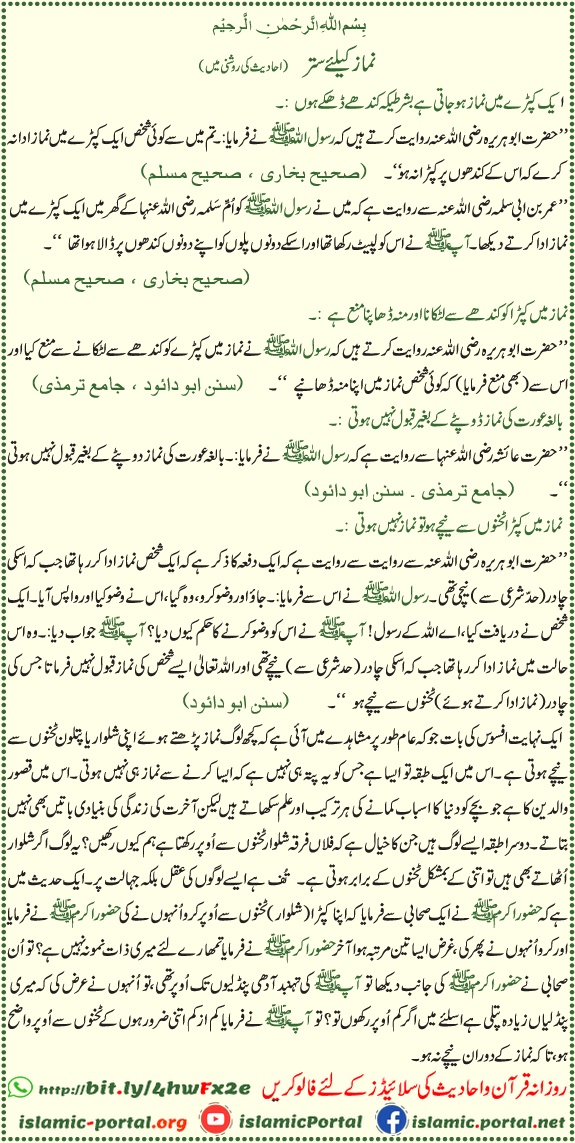 بِسْمِ اللّٰهِ الرَّحْمٰنِ الرَّحِيْمِ
نماز کیلئے ستر (احادیث کی روشنی میں)
ایک کپڑے میں نماز ہو جاتی ہے بشرطیکہ کندھے ڈھکے ہوں :۔
”حضرت ابو ہریرہ رضی اللہ عنہ روایت کرتے ہیں کہ رسول اللہ ﷺ نے فرمایا:۔ تم میں سے کوئی شخص ایک کپڑے میں نماز ادا نہ
کرے کہ اس کے کندھوں پر کپڑا نہ ہو“۔ (صحیح بخاری ، صحیح مسلم)
”عمر بن ابی سلمہ رضی اللہ عنہ سے روایت ہے کہ میں نے رسول اللہ ﷺ کو اُمّ سَلمہ رضی اللہ عنہا کے گھر میں ایک کپڑے میں
نماز ادا کرتے دیکھا۔ آپ ﷺ نے اس کو لپیٹ رکھا تھا اور اسکے دونوں پلوں کو اپنے دونوں کندھوں پر ڈالا ہوا تھا “۔
(صحیح بخاری ، صحیح مسلم)
نماز میں کپڑا کو کندھے سے لٹکانا اور منہ ڈھاپنا منع ہے :۔
”حضرت ابو ہریرہ رضی اللہ عنہ روایت کرتے ہیں کہ رسول اللہ ﷺ نے نماز میں کپڑے کو کندھے سے لٹکانے سے منع کیا اور
اس سے (بھی منع فرمایا) کہ کوئی شخص نماز میں اپنا منہ ڈھانپے “۔ (سنن ابو دائود ، جامع ترمذی)
بالغہ عورت کی نماز ڈوپٹے کے بغیر قبول نہیں ہوتی :۔
”حضرت عائشہ رضی اللہ عنہا سے روایت ہے کہ رسول اللہ ﷺ نے فرمایا:۔ بالغہ عورت کی نماز دوپٹے کے بغیر قبول نہیں ہوتی
“۔ (جامع ترمذی ۔ سنن ابو دائود)
نماز میں کپڑا ٹخنوں سے نیچے ہو تو نماز نہیں ہوتی :۔
”حضرت ابو ہریرہ رضی اللہ عنہ سے روایت سے روایت ہے کہ ایک دفعہ کا ذکر ہے کہ ایک شخص نماز ادا کر رہا تھا جب کہ اسکی
چادر (حدّ شرعی سے) نیچی تھی۔ رسول اللہ ﷺ نے اس سے فرمایا:۔ جاؤ اور وضو کرو، وہ گیا، اس نے وضو کیا اور واپس آیا۔ ایک
شخص نے دریافت کیا، اے اللہ کے رسول! آپ ﷺ نے اس کو وضو کرنے کا حکم کیوں دیا؟ آپ ﷺ جواب دیا:۔ وہ اس
حالت میں نماز ادا کر رہا تھا جب کہ اسکی چادر (حد شرعی سے) نیچے تھی اور اللہ تعالیٰ ایسے شخص کی نماز قبول نہیں فرماتا جس کی
چادر (نماز ادا کرتے ہوئے) ٹخنوں سے نیچے ہو “۔ (سنن ابو دائود)
ایک نہایت افسوس کی بات جو کہ عام طور پر مشاہدے میں آئی ہے کہ کچھ لوگ نماز پڑھتے ہوئے اپنی شلوار یا پتلون ٹخنوں سے
نیچے ہوتی ہے ۔ اس میں ایک طبقہ تو ایسا ہے جس کو یہ پتہ ہی نہیں ہے کہ ایسا کرنے سے نماز ہی نہیں ہوتی۔ اس میں قصور
والدین کا ہے جو بچے کو دنیا کا اسباب کمانے کی ہر ترکیب اور علم سکھاتے ہیں لیکن آخرت کی زندگی کی بنیادی باتیں بھی نہیں
بتاتے ۔ دوسرا طبقہ ایسے لوگ ہیں جن کا خیال ہے کہ فلاں فرقہ شلوار ٹخنوں سے اُوپر رکھتا ہے ہم کیوں رکھیں؟ یہ لوگ اگر شلوار
اُٹھاتے بھی ہیں تو اتنی کے بمشکل ٹخنوں کے برابر ہوتی ہے ۔ تُف ہے ایسے لوگوں کی عقل بلکہ جہالت پر۔ ایک حدیث میں
ہے کہ حضور اکرم ﷺ نے ایک صحابی سے فرمایا کہ اپنا کپڑا (شلوار) ٹخنوں سے اُوپر کرو اُنہوں نے کی حضور اکرم ﷺ نے فرمایا
اور کرو اُنہوں نے پھر کی، غرض ایسا تین مرتبہ ہوا آخر حضور اکرم ﷺ نے فرمایا تمھارے لئے میری ذات نمونہ نہیں ہے؟ تو اُن
صحابی نے حضور اکرم ﷺ کی جانب دیکھا تو آپ ﷺ کی تہبند آدھی پنڈلیوں تک اُوپر تھی، تو اُنہوں نے عرض کی کہ میری
پنڈلیاں زیادہ پتلی ہے اسلئے میں اگر کم اُوپر رکھوں تو؟ تو آپ ﷺ نے فرمایا کم از کم اتنی ضرور ہوں کے ٹخنوں سے اُوپر واضح
ہو، تاکہ نماز کے دوران نیچے نہ ہو۔
روزانہ قرآن و احادیث کی سلائیڈز کے لئے فالو کریں http://bit.ly/4hwFx2e
islamic-portal.org islamicPortal islamic.portal.net